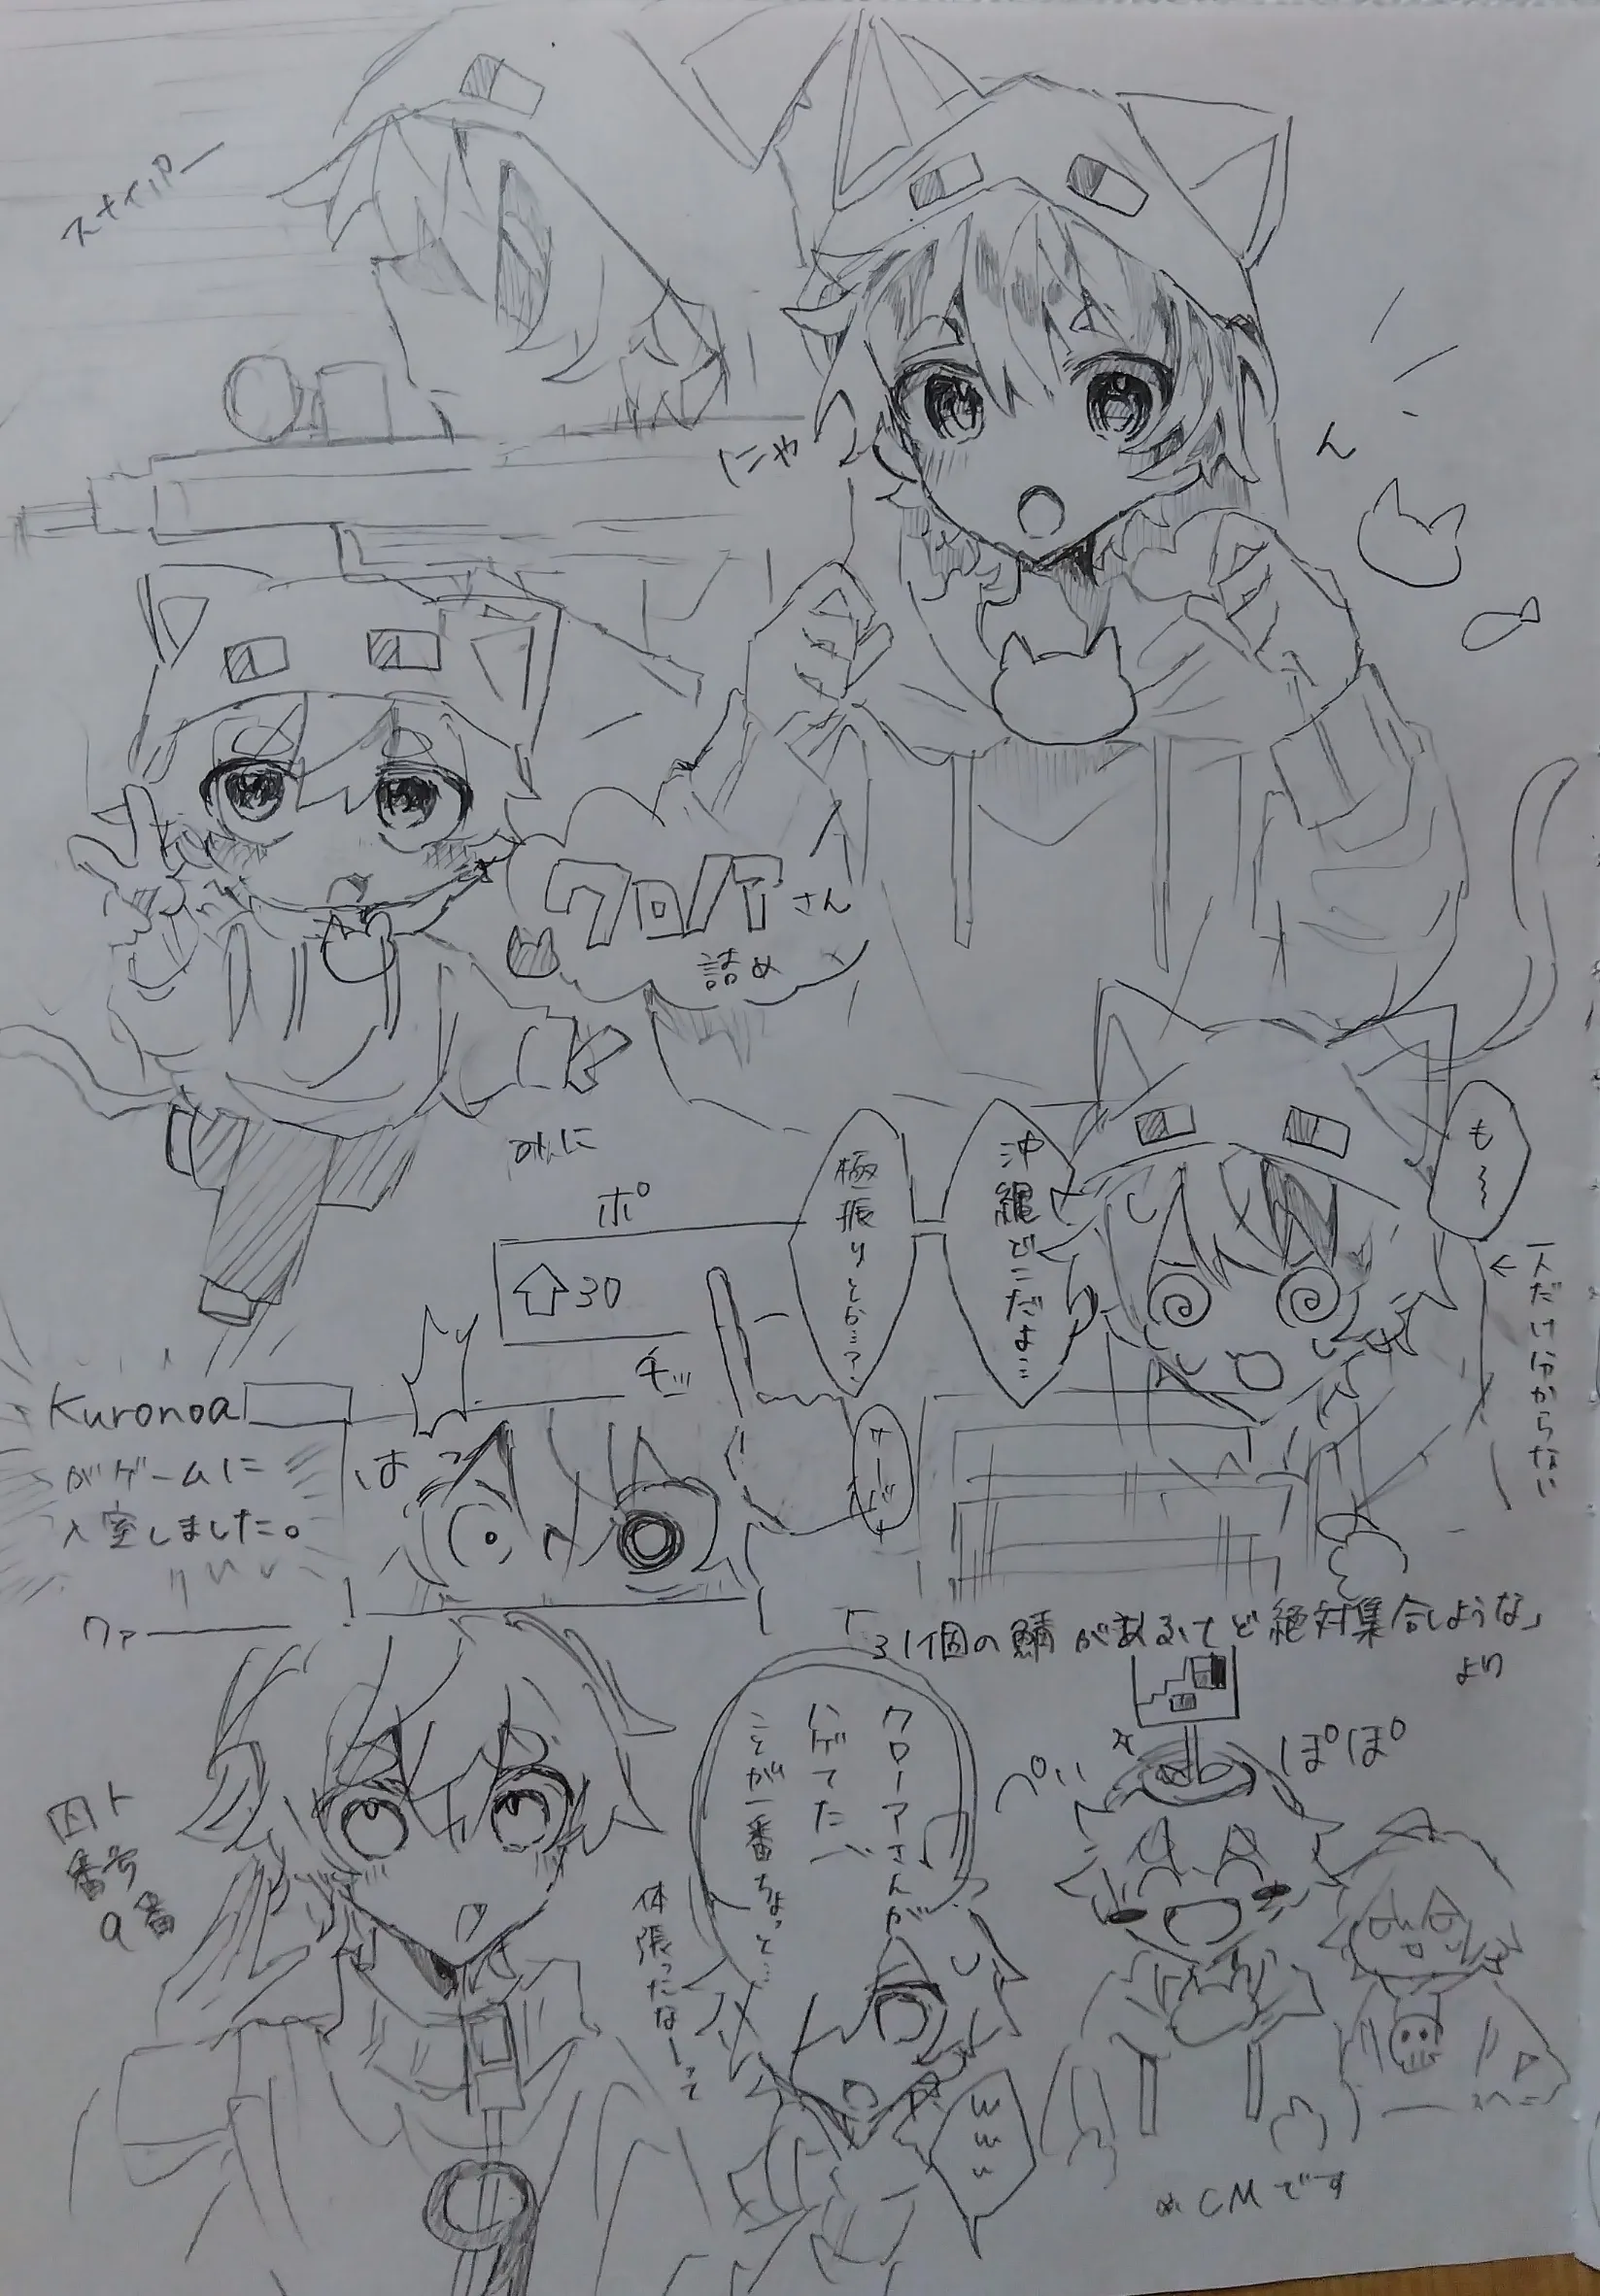 スナイパー
にゃ
ん
クロノア
さん
詰め
みに
も〜
沖縄どこだよ…
極振りとか…?
←一人だけ分からない
ポ
↑30
チッ
Kuronoa
がゲームに
入室しました。
は
ワァ――!
「31個の鯖があるけど絶対集合しような」
より
囚人
番号
9番
クローアさんが
ハゲてた
ことが一番ちょっと…
体張ったなーって
www
ぽぽ
※CMです